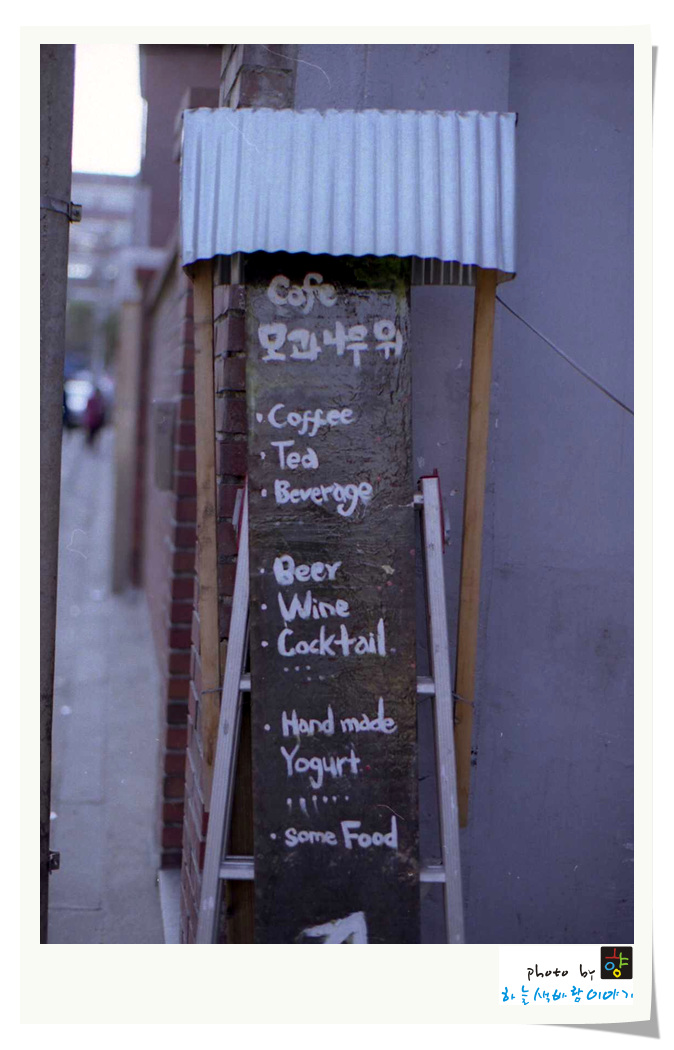 Cafe
모과나무위
· Coffee
· Tea
· Beverage
· Beer
· Wine
· Cocktail
.....
· Hand made
Yogurt
......
· some Food
photo by 향
하늘색바람이야기